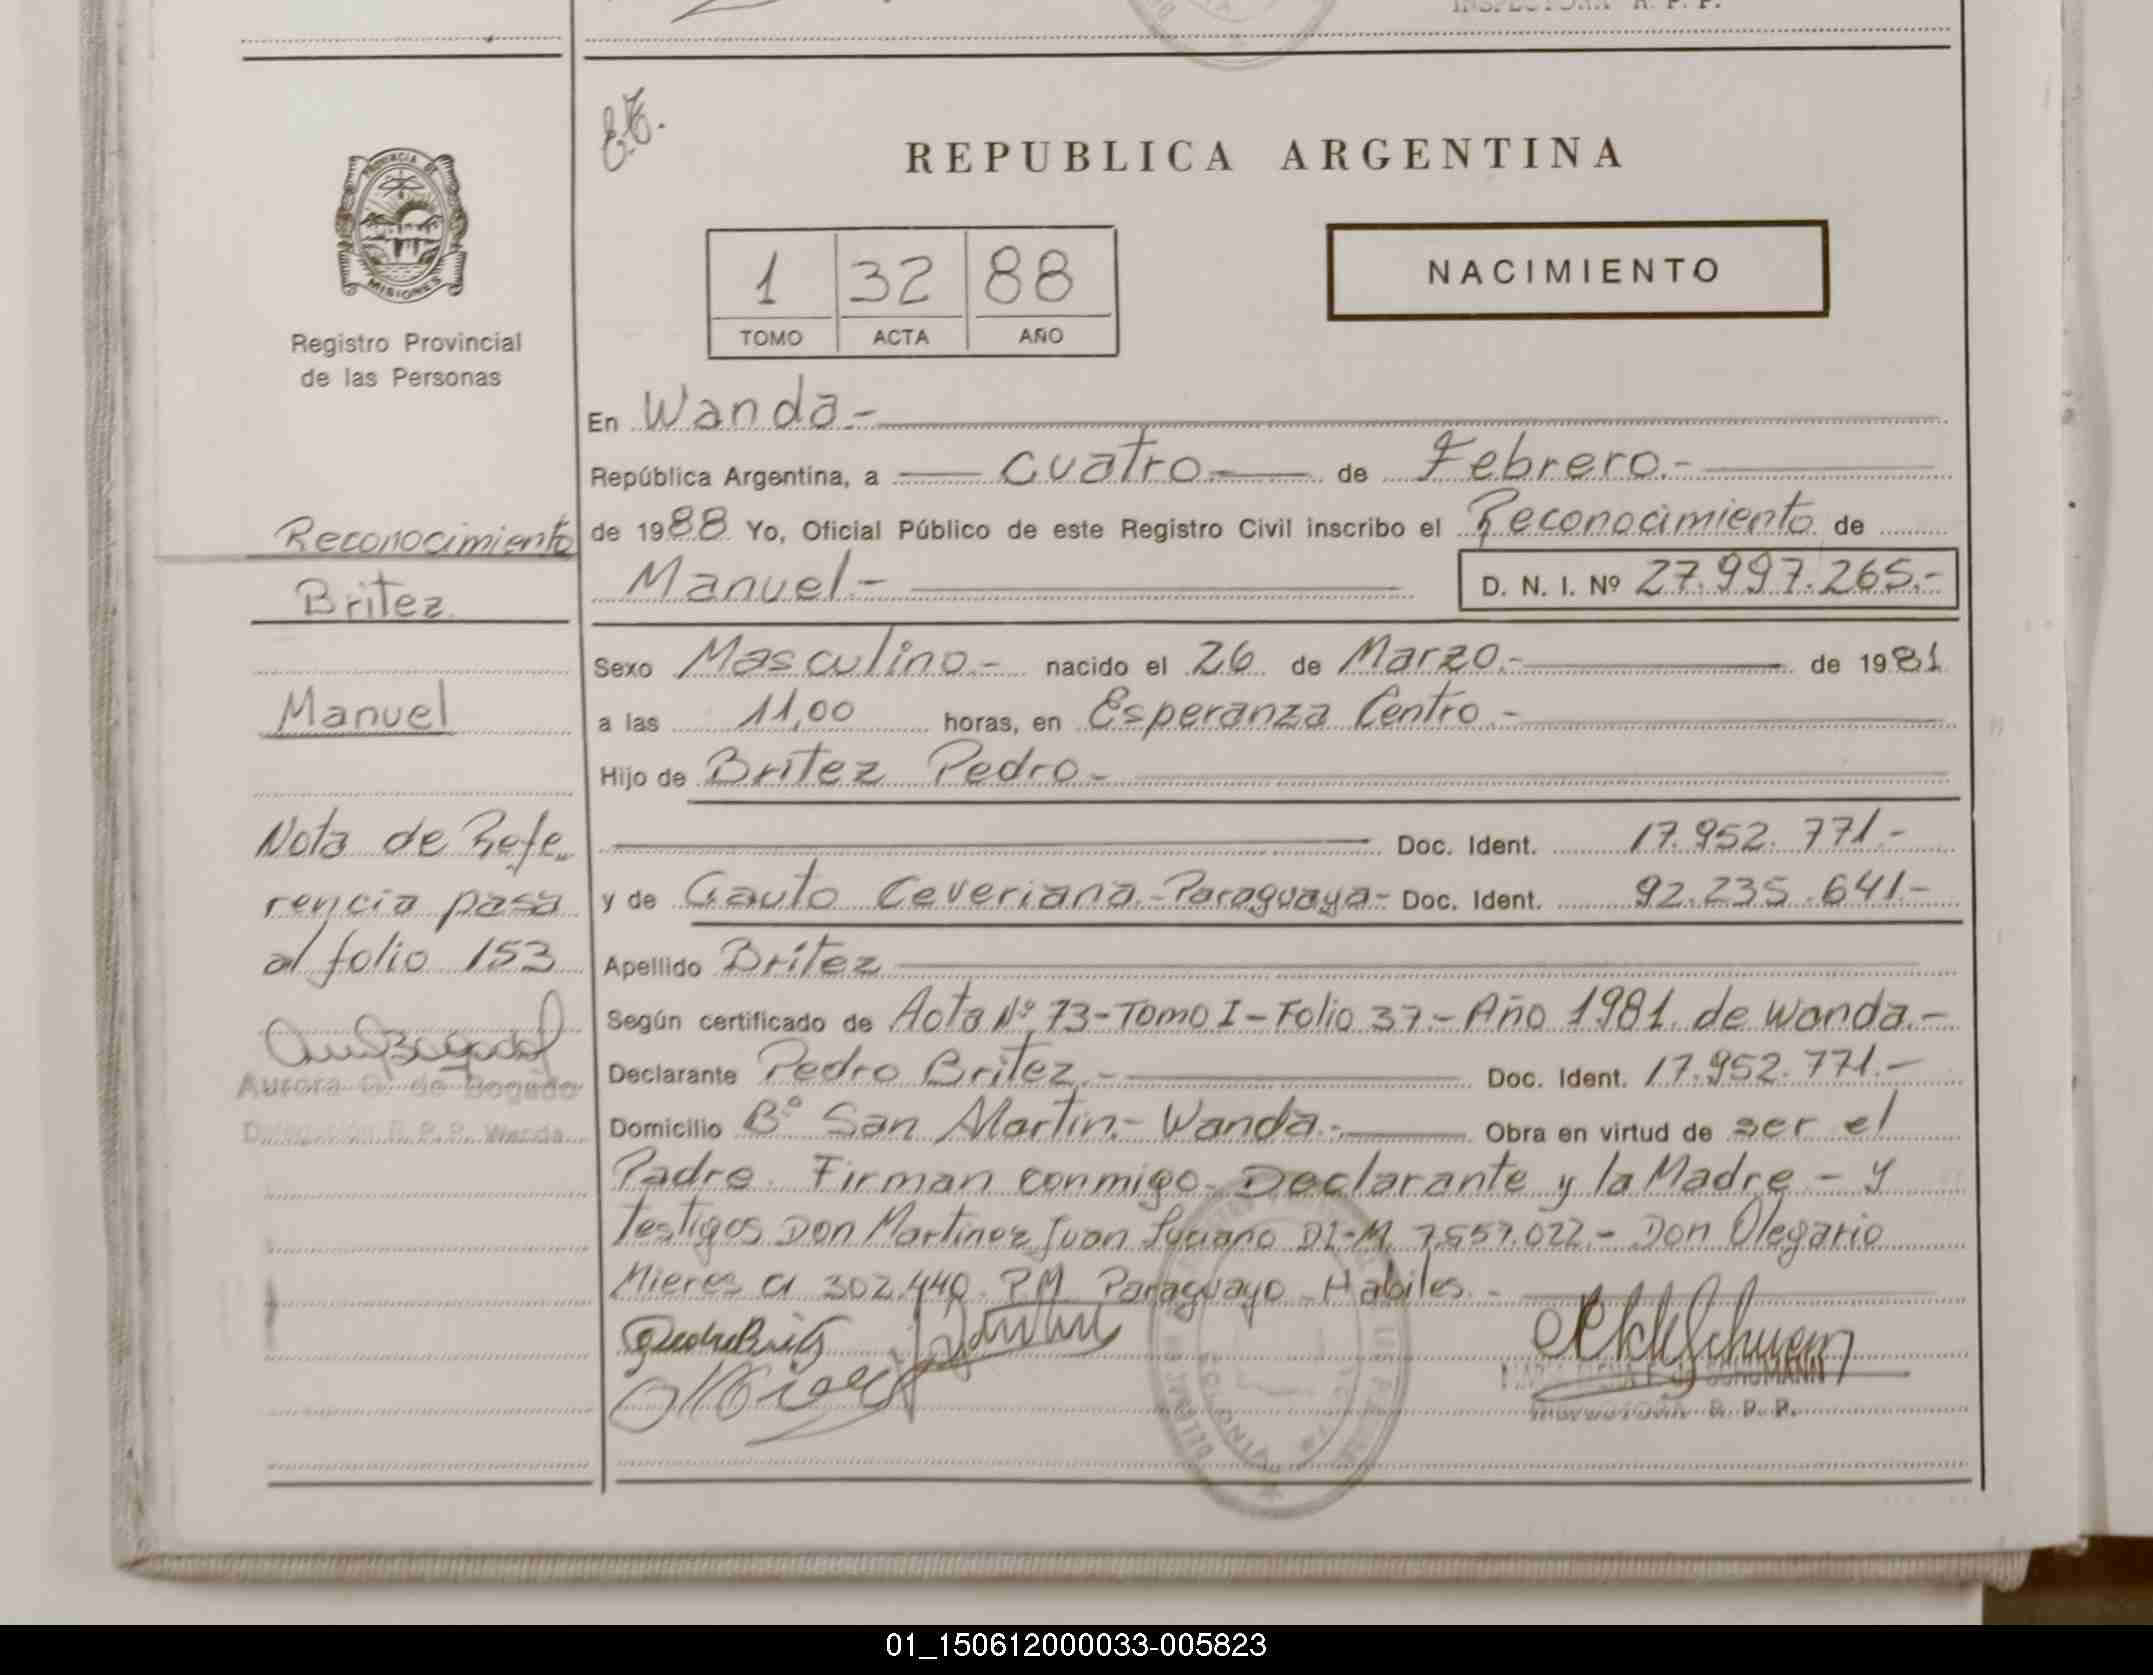 INSPECTORA R. P. P.
E.T.
PROVINCIA DE
MISIONES
Registro Provincial
de las Personas
Reconocimiento
Britez
Manuel
Nota de Refe
rencia pasa
al folio 153
Aurora G. de Bogado
Delegación R. P. P. Wanda
REPUBLICA ARGENTINA
1 32 88
TOMO ACTA AÑO
NACIMIENTO
En Wanda.-
República Argentina, a cuatro.- de Febrero.-
de 1988 Yo, Oficial Público de este Registro Civil inscribo el Reconocimiento de
Manuel.- D. N. I. Nº 27.997.265.-
Sexo Masculino.- nacido el 26 de Marzo.- de 1981
a las 11,00 horas, en Esperanza Centro.-
Hijo de Britez Pedro.-
Doc. Ident. 17.952.771.-
y de Gauto Ceveriana.-Paraguaya- Doc. Ident. 92.235.641.-
Apellido Britez
Según certificado de Acta Nº 73-Tomo I-Folio 37.- Año 1981 de Wanda.-
Declarante Pedro Britez.- Doc. Ident. 17.952.771.-
Domicilio Bº San Martin.- Wanda.- Obra en virtud de ser el
Padre. Firman conmigo. Declarante y la Madre - y
testigos Don Martinez Juan Luciano DI-M 7.557.022.- Don Olegario
Mieres CI 302.440. P.M. Paraguayo. Habiles.-
SCHUMANN
R. P. P.
01_150612000033-005823